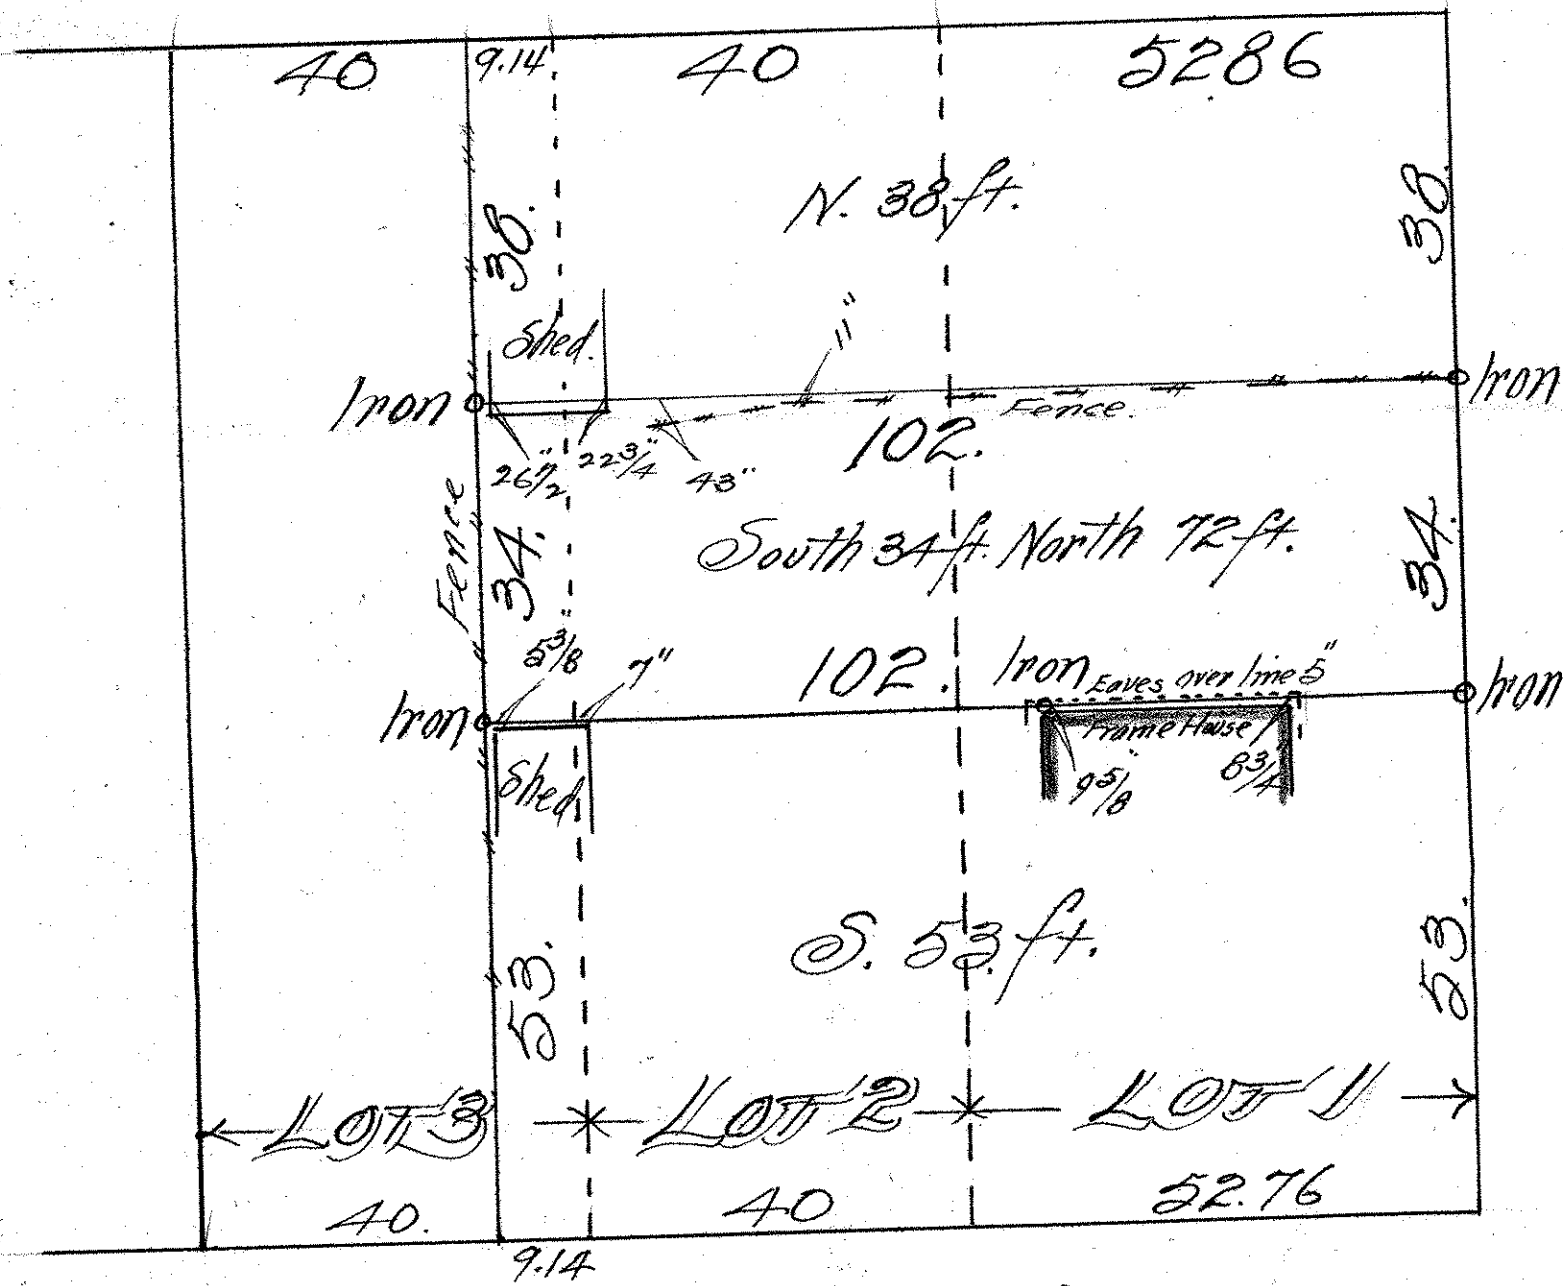 40 9.14 40 5286
N. 38 ft.
38. 38.
Shed.
11"
Iron Iron
Fence.
102.
26 1/2" 22 3/4" 43"
Fence
34. South 34 ft. North 72 ft. 34.
5 3/8" 7"
102. Iron Eaves over line 5"
Iron Iron
Frame House
Shed 9 5/8" 8 3/4"
S. 53 ft.
53. 53.
LOT 3 LOT 2 LOT 1
40. 40 52.76
9.14